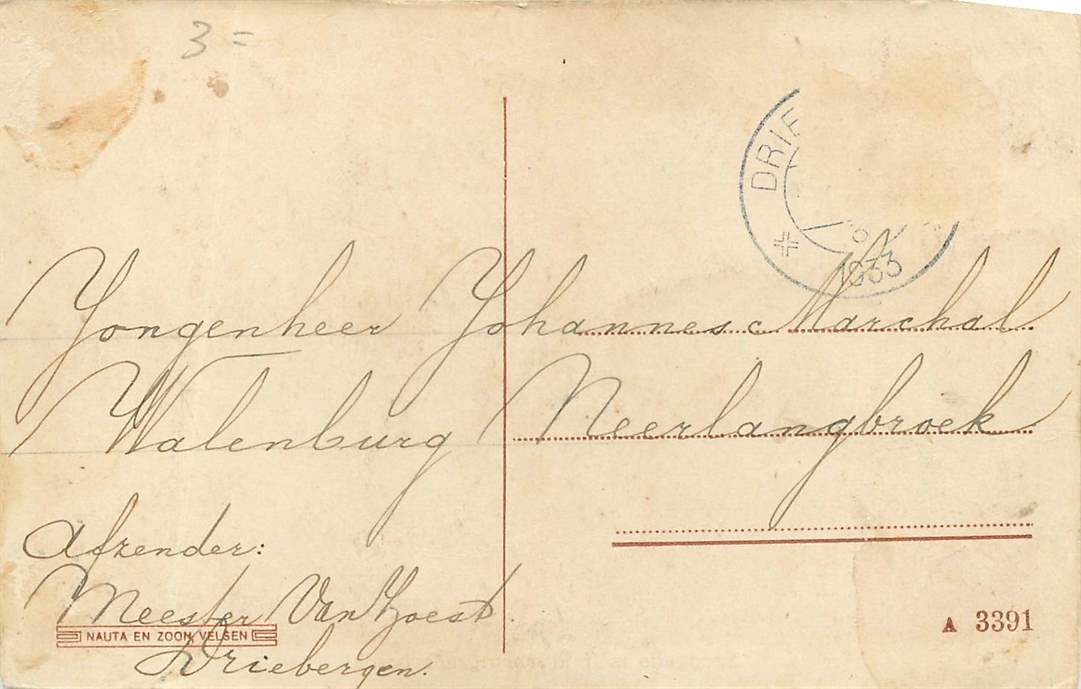 3 =
DRIE
3
1933
Jongenheer Johannes Marchal
Walenburg Neerlangbroek
Afzender:
Meester Van Zoest
NAUTA EN ZOON, VELSEN
Driebergen.
A 3391